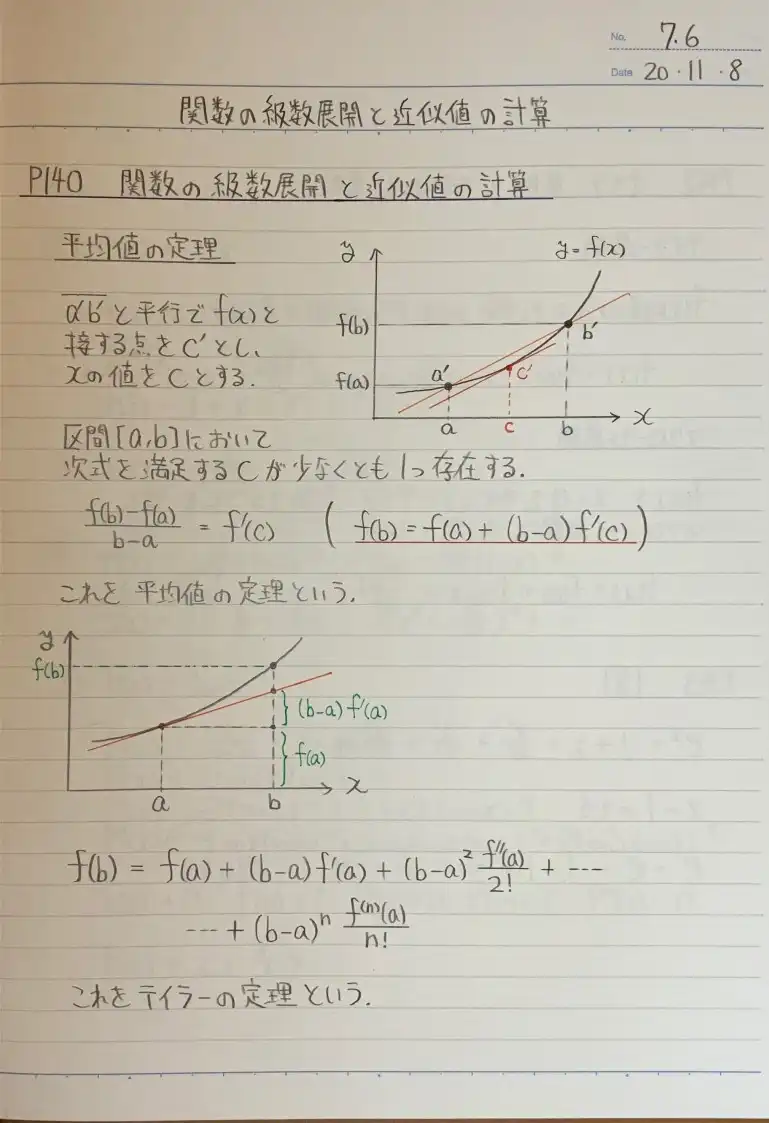 No. 7.6
Date 20・11・8
関数の級数展開と近似値の計算
P140 関数の級数展開と近似値の計算
平均値の定理
a'b'と平行でf(x)と
接する点をC'とし、
xの値をCとする.
y
y=f(x)
f(b)
b'
f(a)
a'
c'
a
c
b
x
区間[a,b]において
次式を満足するCが少なくとも1つ存在する.
f(b)-f(a)/b-a = f'(c) ( f(b)=f(a)+(b-a)f'(c) )
これを平均値の定理という.
y
f(b)
}(b-a)f'(a)
}f(a)
x
a
b
f(b) = f(a) + (b-a)f'(a) + (b-a)² f''(a)/2! + ---
--- + (b-a)ⁿ f⁽ⁿ⁾(a)/n!
これをテイラーの定理という.